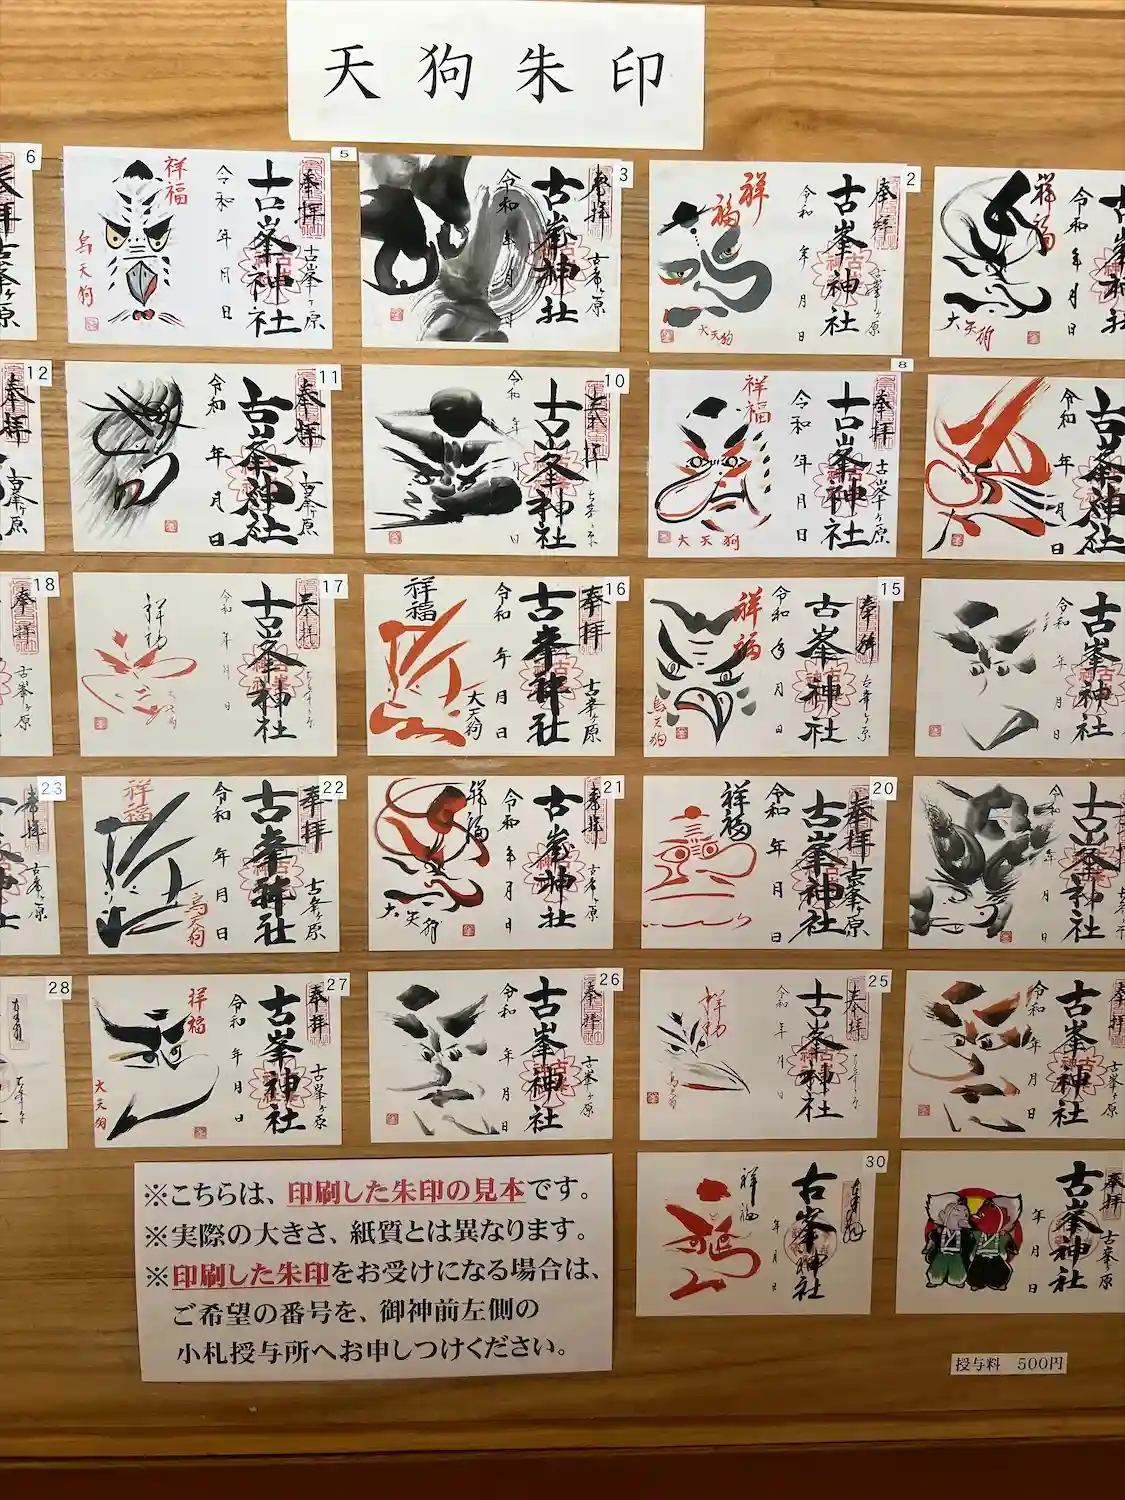 天狗朱印
6
5
3
2
奉拝
古峯ヶ原
古峯神社
令和 年 月 日
祥福
烏天狗
奉拝
古峯ヶ原
古峯神社
令和 年 月 日
奉拝
古峯ヶ原
古峯神社
令和 年 月 日
祥福
大天狗
祥福
令和 年 月 日
大天狗
12
11
10
8
奉拝
古峯ヶ原
古峯神社
令和 年 月 日
古峯神社
令和 年 月 日
奉拝
古峯ヶ原
古峯神社
令和 年 月 日
祥福
大天狗
古峯神社
令和 年 月 日
18
17
16
15
奉拝
古峯ヶ原
奉拝
古峯神社
令和 年 月 日
奉拝
古峯ヶ原
古峯神社
令和 年 月 日
祥福
大天狗
奉拝
古峯ヶ原
古峯神社
令和 年 月 日
祥福
烏天狗
古峯神社
令和 年 月 日
23
22
21
20
奉拝
古峯ヶ原
奉拝
古峯ヶ原
古峯神社
令和 年 月 日
祥福
烏天狗
奉拝
古峯ヶ原
古峯神社
令和 年 月 日
祥福
大天狗
奉拝
古峯ヶ原
古峯神社
令和 年 月 日
祥福
古峯神社
令和 年 月 日
28
27
26
25
奉拝
古峯ヶ原
古峯神社
令和 年 月 日
祥福
大天狗
奉拝
古峯ヶ原
古峯神社
令和 年 月 日
奉拝
古峯神社
令和 年 月 日
奉拝
古峯ヶ原
古峯神社
令和 年 月 日
30
古峯神社
年 月 日
祥福
奉拝
古峯ヶ原
古峯神社
年 月 日
※こちらは、印刷した朱印の見本です。
※実際の大きさ、紙質とは異なります。
※印刷した朱印をお受けになる場合は、
ご希望の番号を、御神前左側の
小札授与所へお申しつけください。
授与料 500円